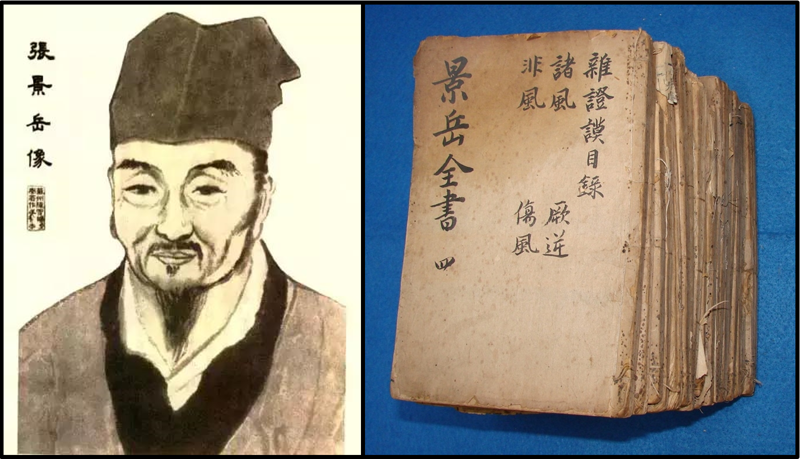 張景岳像
景岳全書 四
雜證謨目錄
諸風 厥逆
非風 傷風